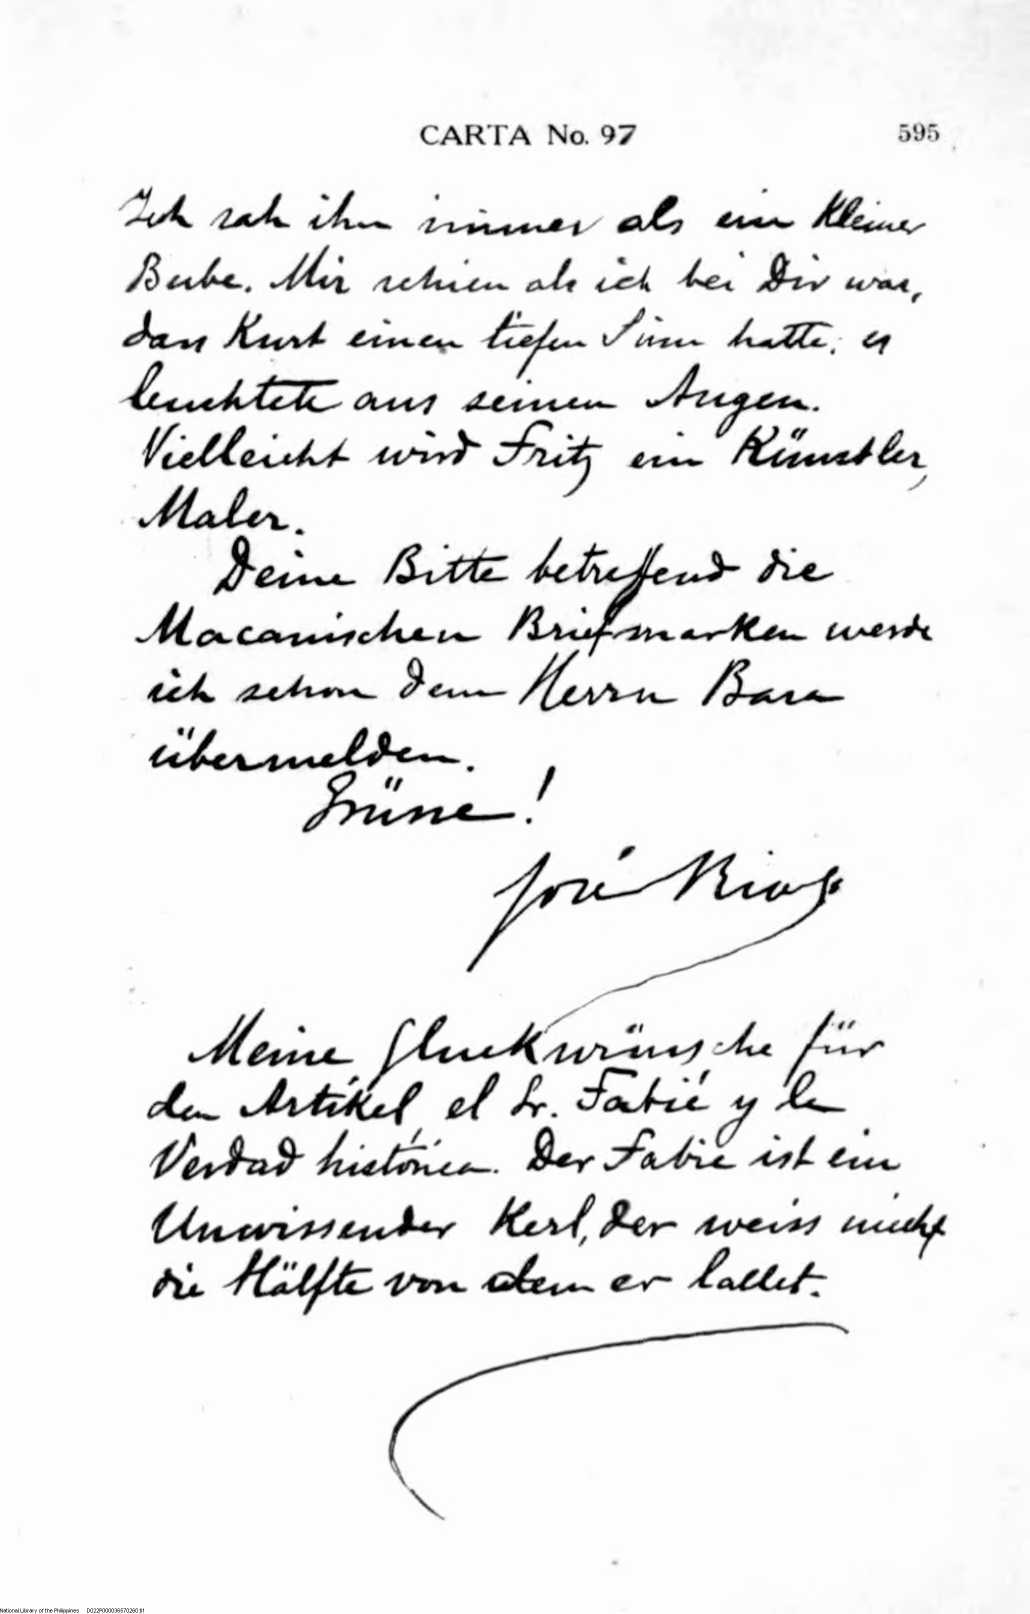 CARTA No. 97 595
Ich sah ihn immer als ein Kleiner
Bube. Mir schien als ich bei Dir war,
dass Kurt einen tiefen Sinn hatte; es
leuchtete aus seinen Augen.
Vielleicht wird Fritz ein Künstler,
Maler.
Deine Bitte betreffend die
Macanischen Briefmarken werde
ich schon dem Herrn Basa
übermelden.
Grüsse!
José Rizal
Meine Gluckwünsche für
den Artikel, el Sr. Fabié y la
Verdad histórica. Der Fabie ist ein
Unwissender Kerl, der weiss nicht
die Hälfte von dem er lallet.
National Library of the Philippines